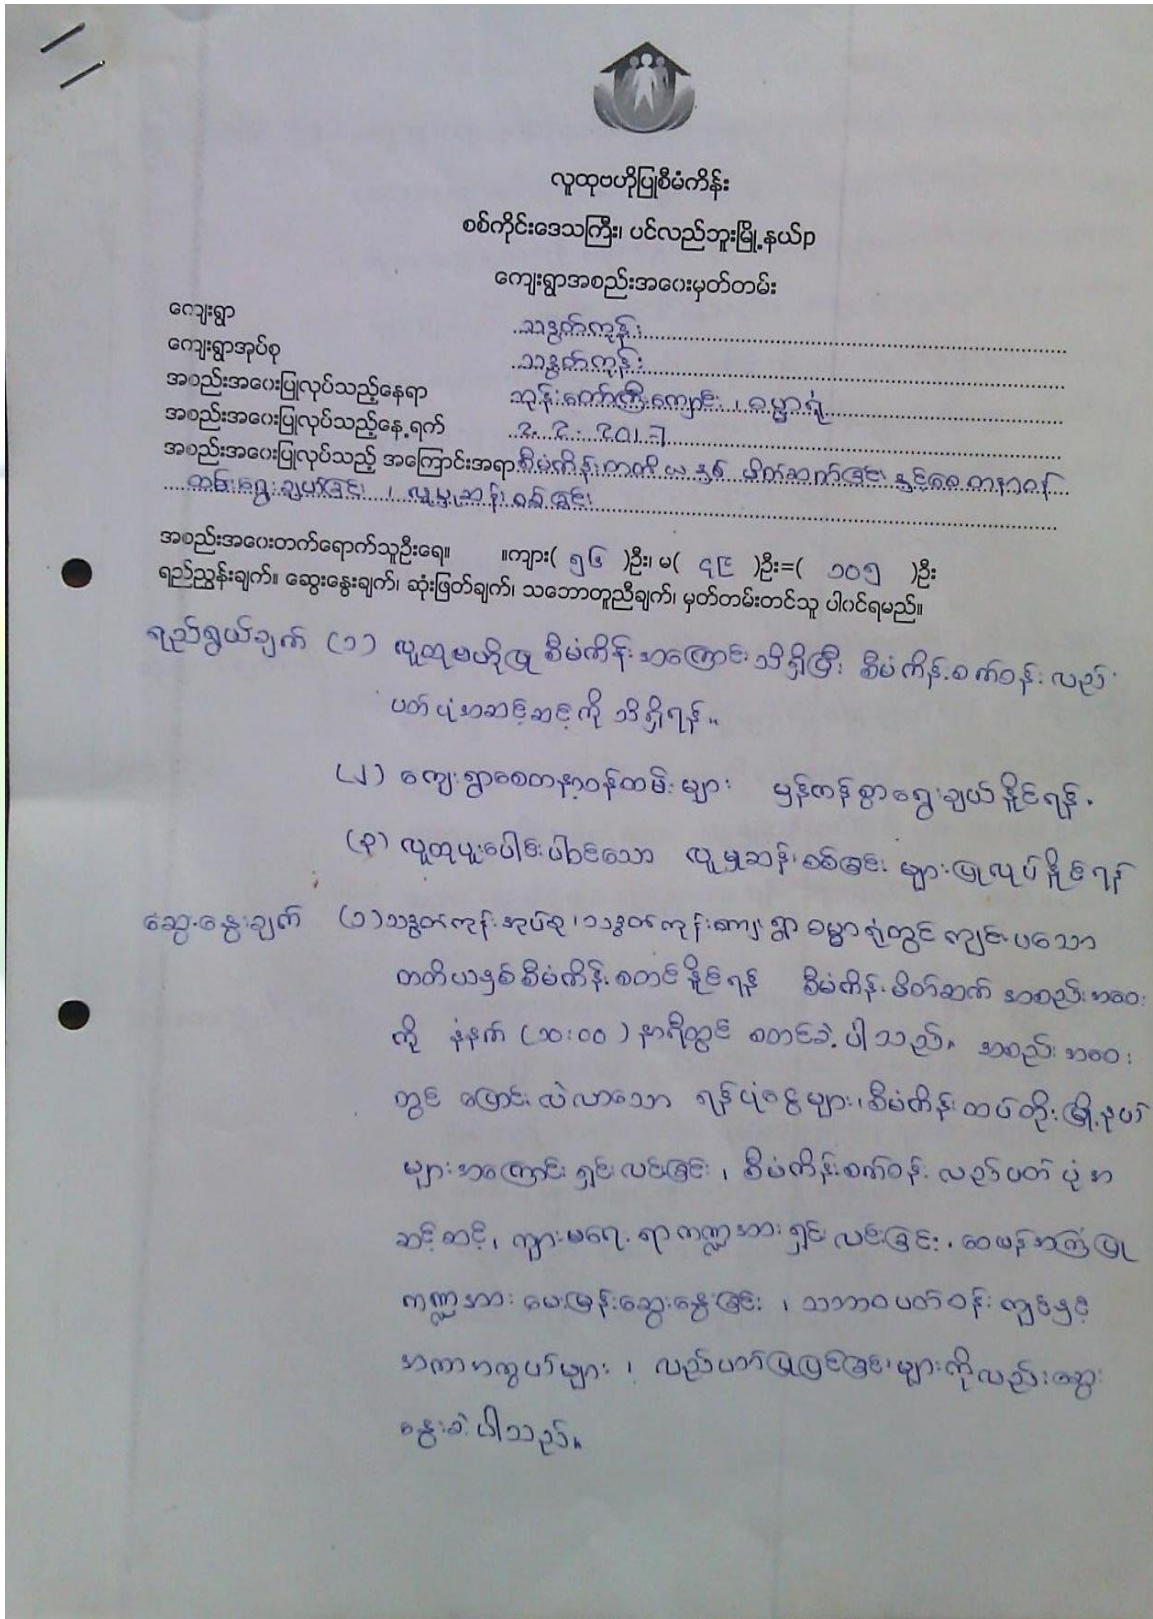 လူထုဗဟိုပြုစီမံကိန်း
စစ်ကိုင်းဒေသကြီး၊ ပင်လည်ဘူးမြို့နယ်p
ကျေးရွာအစည်းအဝေးမှတ်တမ်း
ကျေးရွာ သဒွတ်ကုန်း
ကျေးရွာအုပ်စု သဒွတ်ကုန်း
အစည်းအဝေးပြုလုပ်သည့်နေရာ ဘုန်းတော်ကြီးကျောင်း ၊ ဓမ္မာရုံ
အစည်းအဝေးပြုလုပ်သည့်နေ့ရက် 2. 2. 2017
အစည်းအဝေးပြုလုပ်သည့် အကြောင်းအရာ စီမံကိန်း တတိယနှစ် မိတ်ဆက်ခြင်း နှင့်စေတနာ့ဝန်
ထမ်းရွေးချယ်ခြင်း ၊ လူမှုဆန်းစစ်ခြင်း
အစည်းအဝေးတက်ရောက်သူဦးရေ။ ။ကျား( ၅၆ )ဦး၊ မ( ၄၉ )ဦး=( ၁၀၅ )ဦး
ရည်ညွှန်းချက်။ ဆွေးနွေးချက်၊ ဆုံးဖြတ်ချက်၊ သဘောတူညီချက်၊ မှတ်တမ်းတင်သူ ပါဝင်ရမည်။
ရည်ရွယ်ချက် (၁) လူထုဗဟိုပြု စီမံကိန်း အကြောင်း သိရှိပြီး စီမံကိန်းစက်ဝန်း လည်
ပတ်ပုံအဆင့်ဆင့်ကို သိရှိရန်။
(၂) ကျေးရွာစေတနာ့ဝန်ထမ်းများ မှန်ကန်စွာရွေးချယ်နိုင်ရန်.
(၃) လူထုပူးပေါင်းပါဝင်သော လူမှုဆန်းစစ်ခြင်း များပြုလုပ်နိုင်ရန်
ဆွေးနွေးချက် (၁) သဒွတ်ကုန်းအုပ်စု၊ သဒွတ်ကုန်းကျေးရွာ ဓမ္မာရုံတွင် ကျင်းပသော
တတိယနှစ်စီမံကိန်းစတင်နိုင်ရန် စီမံကိန်းမိတ်ဆက် အစည်းအဝေး
ကို နံနက် (၁၀:၀၀) နာရီတွင် စတင်ခဲ့ပါသည်။ အစည်းအဝေး
တွင် ပြောင်းလဲလာသော ရန်ပုံငွေများ၊ စီမံကိန်းထပ်တိုးမြို့နယ်
များအကြောင်း ရှင်းလင်းခြင်း ၊ စီမံကိန်းစက်ဝန်းလည်ပတ်ပုံအ
ဆင့်ဆင့်၊ ကျားမရေးရာကဏ္ဍအား ရှင်းလင်းခြင်း၊ ဝေဖန်အကြံပြု
ကဏ္ဍအား မေးမြန်းဆွေးနွေးခြင်း ၊ သဘာဝပတ်ဝန်းကျင်နှင့်
အကာအကွယ်များ ၊ လည်ပတ်ပြုပြင်ခြင်းများကိုလည်းဆွေး
နွေးခဲ့ပါသည်။